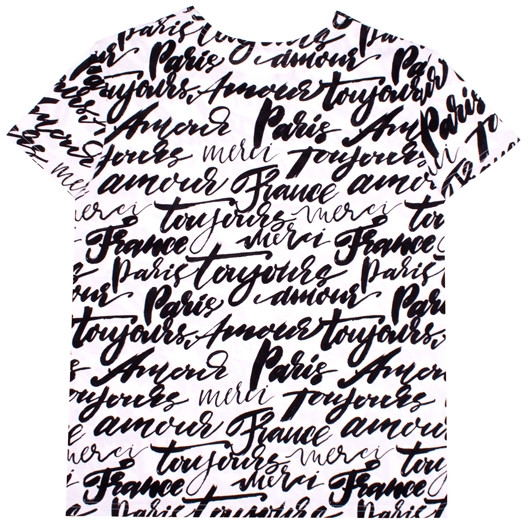 Paris toujours
Paris amour
toujours, Amour toujours
Amour Paris Am Paris
jours merci Toujours To
amour France
merci toujours merci tou
France merci
Paris toujours
Paris amour
toujours, Amour toujours,
Amour Paris Am
oujours merci Toujours
amour France amo
merci toujours merci
France merci France